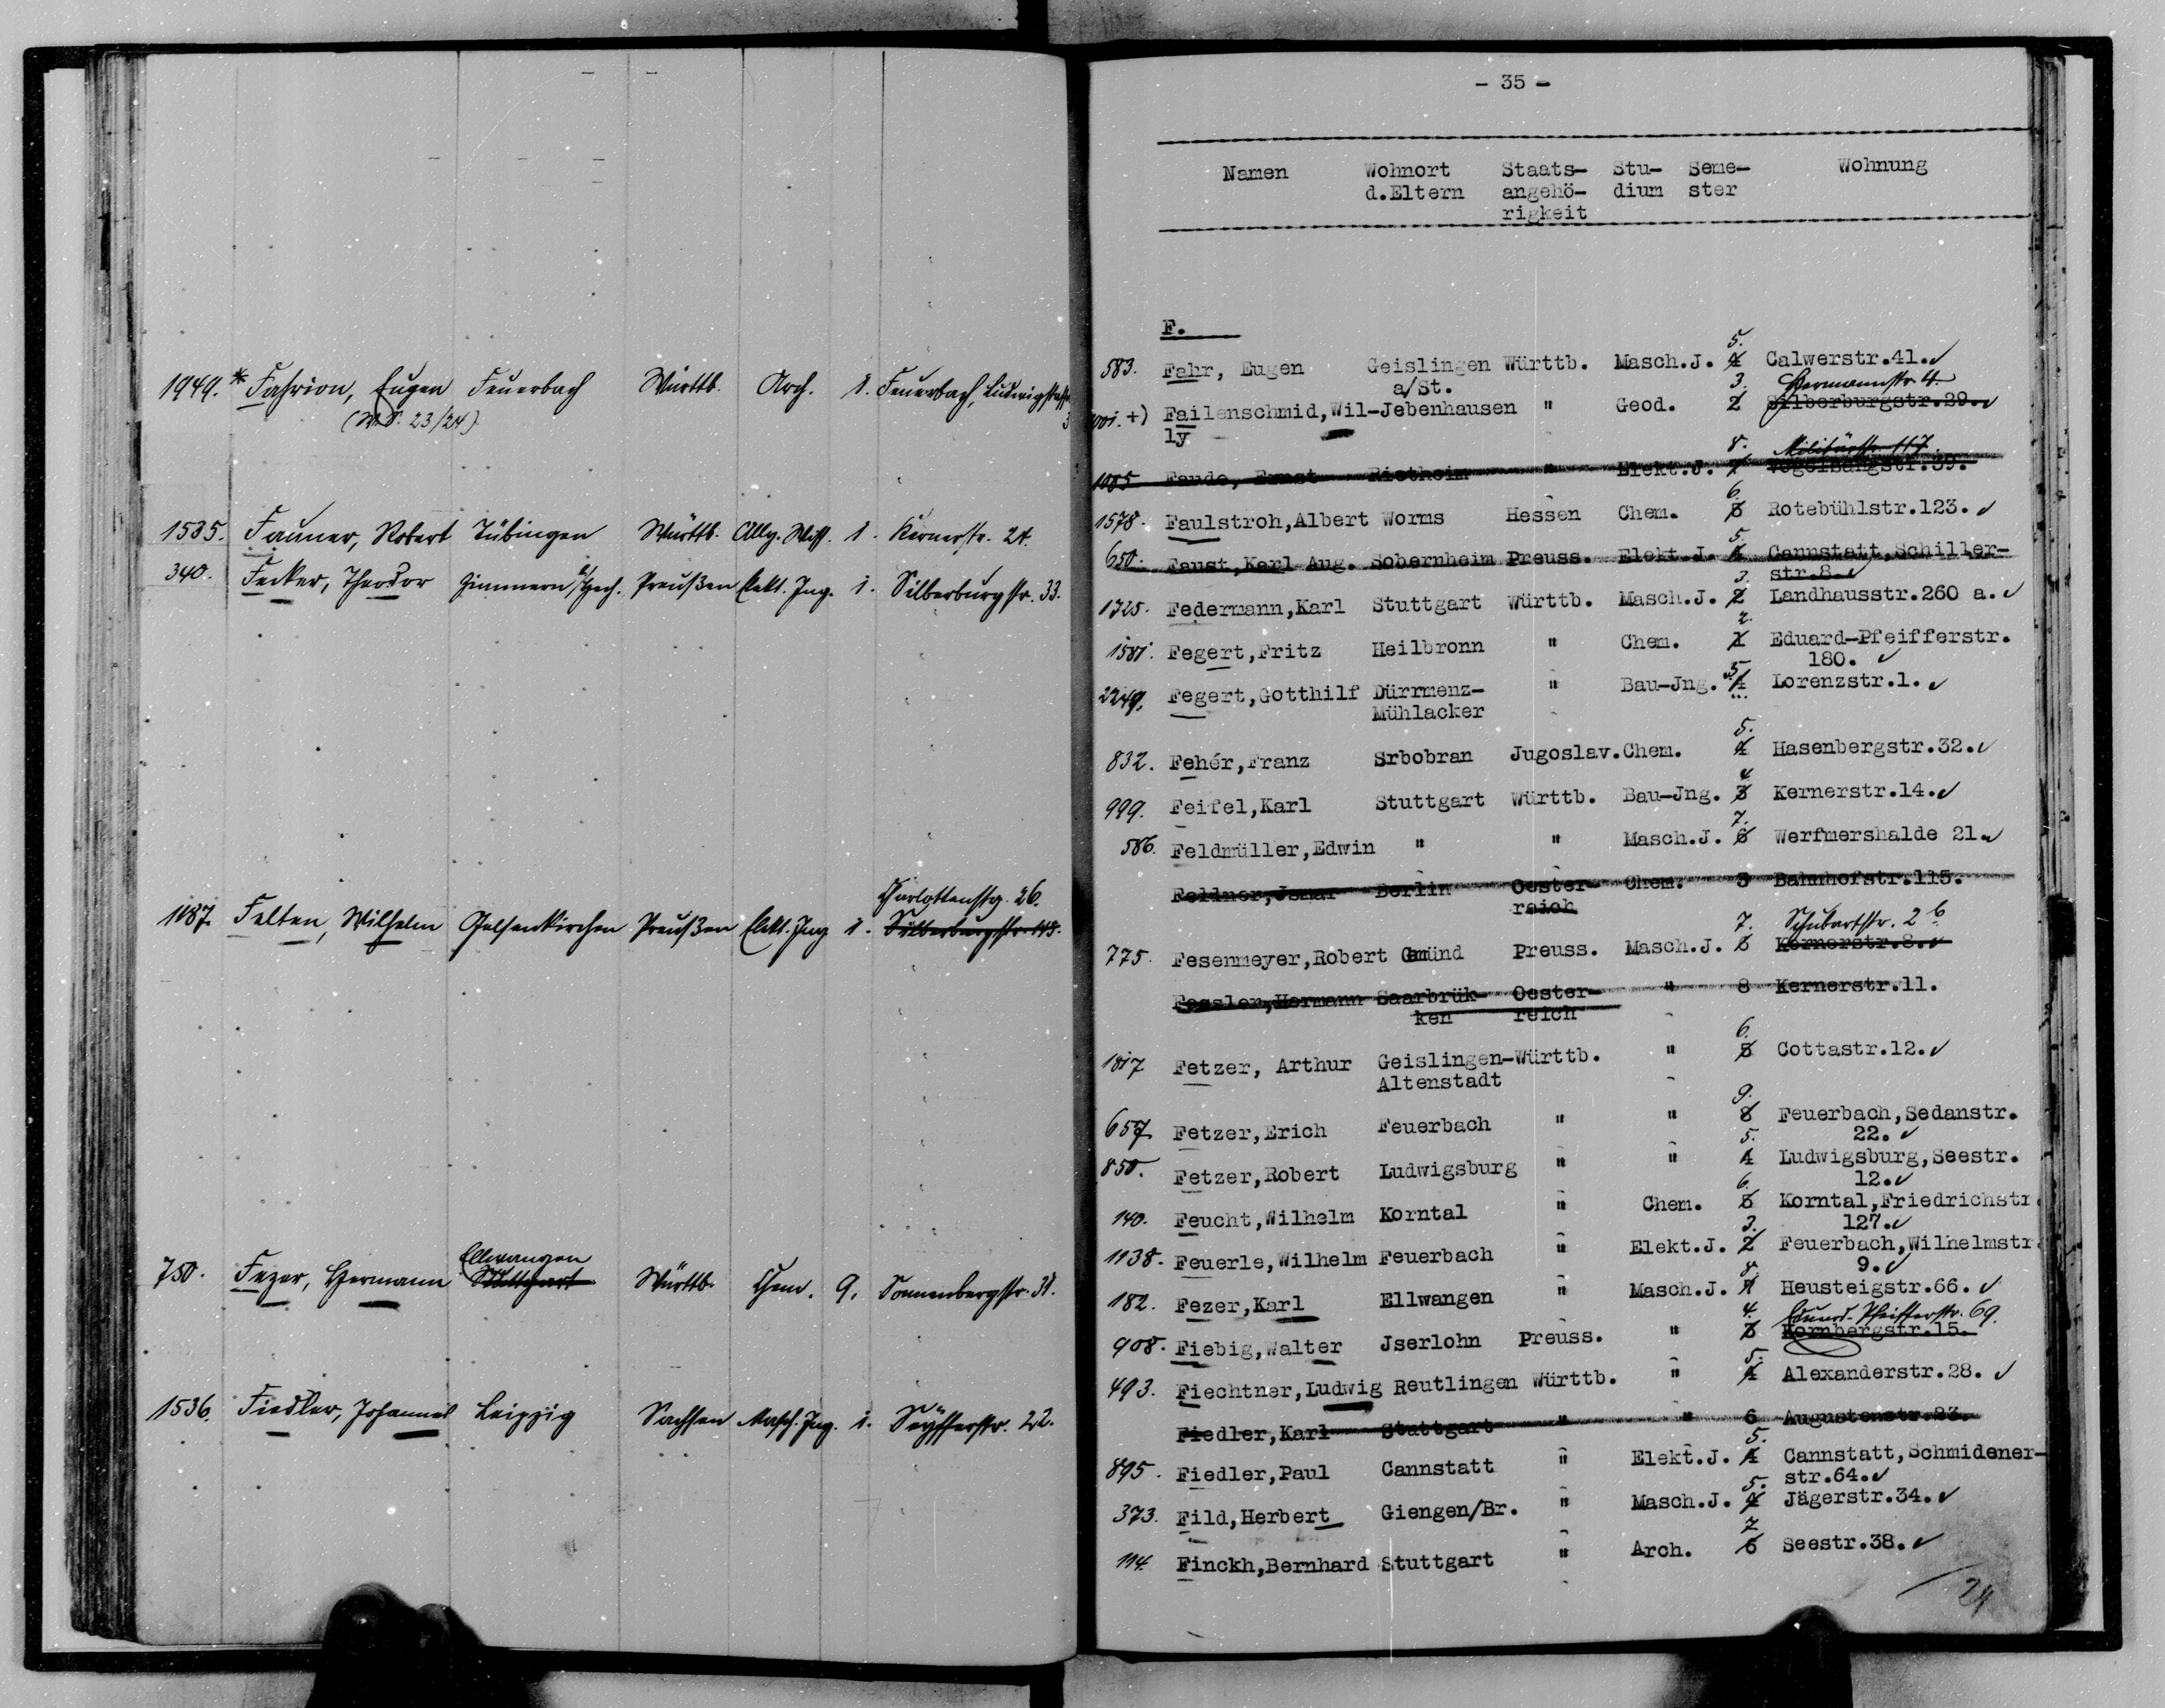 1949. * Fahrion, Eugen Feuerbach Württb. Arch. 1. Feuerbach, Ludwigstr.
(W.S. 23/24)
1535. Fauner, Robert Tübingen Württb. Allg. Wiss. 1. Kernerstr. 24.
340. Fecker, Theodor Preußen Elekt. Ing. 1. Silberburgstr. 33.
Charlottenstr. 26.
1187. Felten, Wilhelm Gelsenkirchen Preußen Elekt. Ing 1. Silberburgstr. 145.
Ellwangen
750. Fezer, Hermann Stuttgart Württb. Chem. 9. Sonnenbergstr. 31.
1536. Fiedler, Johannes Leipzig Sachsen Masch. Ing. 1. Seyfferstr. 22.
- 35 -
Namen Wohnort Staats- Stu- Seme- Wohnung
d.Eltern angehö- dium ster
rigkeit
F.
5.
583. Fahr, Eugen Geislingen Württb. Masch.J. 4 Calwerstr.41.✓
a/St. 3. Hermannstr. 4.
+) Failenschmid,Wil-Jebenhausen " Geod. 2 Silberburgstr.29.✓
ly
8. Militärstr. 117
1085 Faude, Ernst Rietheim " Elekt.J. 7 Vogelsangstr.39.
6.
1578. Faulstroh,Albert Worms Hessen Chem. 5 Rotebühlstr.123.✓
5.
650. Faust,Karl Aug. Sobernheim Preuss. Elekt.J. 4 Cannstatt,Schiller-
3. str.8.✓
1325. Federmann,Karl Stuttgart Württb. Masch.J. 2 Landhausstr.260 a.✓
2.
1581. Fegert,Fritz Heilbronn " Chem. 1 Eduard-Pfeifferstr.
5 180. ✓
2249. Fegert,Gotthilf Dürrmenz- " Bau-Jng. 4 Lorenzstr.1.✓
Mühlacker
5.
832. Fehér,Franz Srbobran Jugoslav.Chem. 4 Hasenbergstr.32.✓
4
999. Feifel,Karl Stuttgart Württb. Bau-Jng. 3 Kernerstr.14.✓
7.
586. Feldmüller,Edwin " " Masch.J. 6 Werfmershalde 21.✓
Feldner,Jsmar Berlin Oester- Chem. 3 Bahnhofstr.115.
reich
7. Schubartstr. 2 b
775. Fesenmeyer,Robert Gmünd Preuss. Masch.J. 6 Kernerstr.8.✓
Fessler,Hermann Saarbrük- Oester- " 8 Kernerstr.11.
ken reich
6.
1817 Fetzer, Arthur Geislingen-Württb. " 5 Cottastr.12.✓
Altenstadt
9.
657. Fetzer,Erich Feuerbach " " 8 Feuerbach,Sedanstr.
5. 22.✓
850. Fetzer,Robert Ludwigsburg " " 4 Ludwigsburg,Seestr.
6. 12.✓
140. Feucht,Wilhelm Korntal " Chem. 5 Korntal,Friedrichstr.
3. 127.✓
1138. Feuerle,Wilhelm Feuerbach " Elekt.J. 2 Feuerbach,Wilhelmstr.
8. 9.✓
182. Fezer,Karl Ellwangen " Masch.J. 7 Heusteigstr.66.✓
4. Eduard-Pfeifferstr. 69.
908. Fiebig,Walter Jserlohn Preuss. " 3 Kornbergstr.15.
5.
493. Fiechtner,Ludwig Reutlingen Württb. " 4 Alexanderstr.28.✓
Fiedler,Karl Stuttgart " " 6 Augustenstr.83.
5.
895. Fiedler,Paul Cannstatt " Elekt.J. 4 Cannstatt,Schmidener-
5. str.64.✓
373. Fild,Herbert Giengen/Br. " Masch.J. 4 Jägerstr.34.✓
7
114. Finckh,Bernhard Stuttgart " Arch. 6 Seestr.38.✓
24